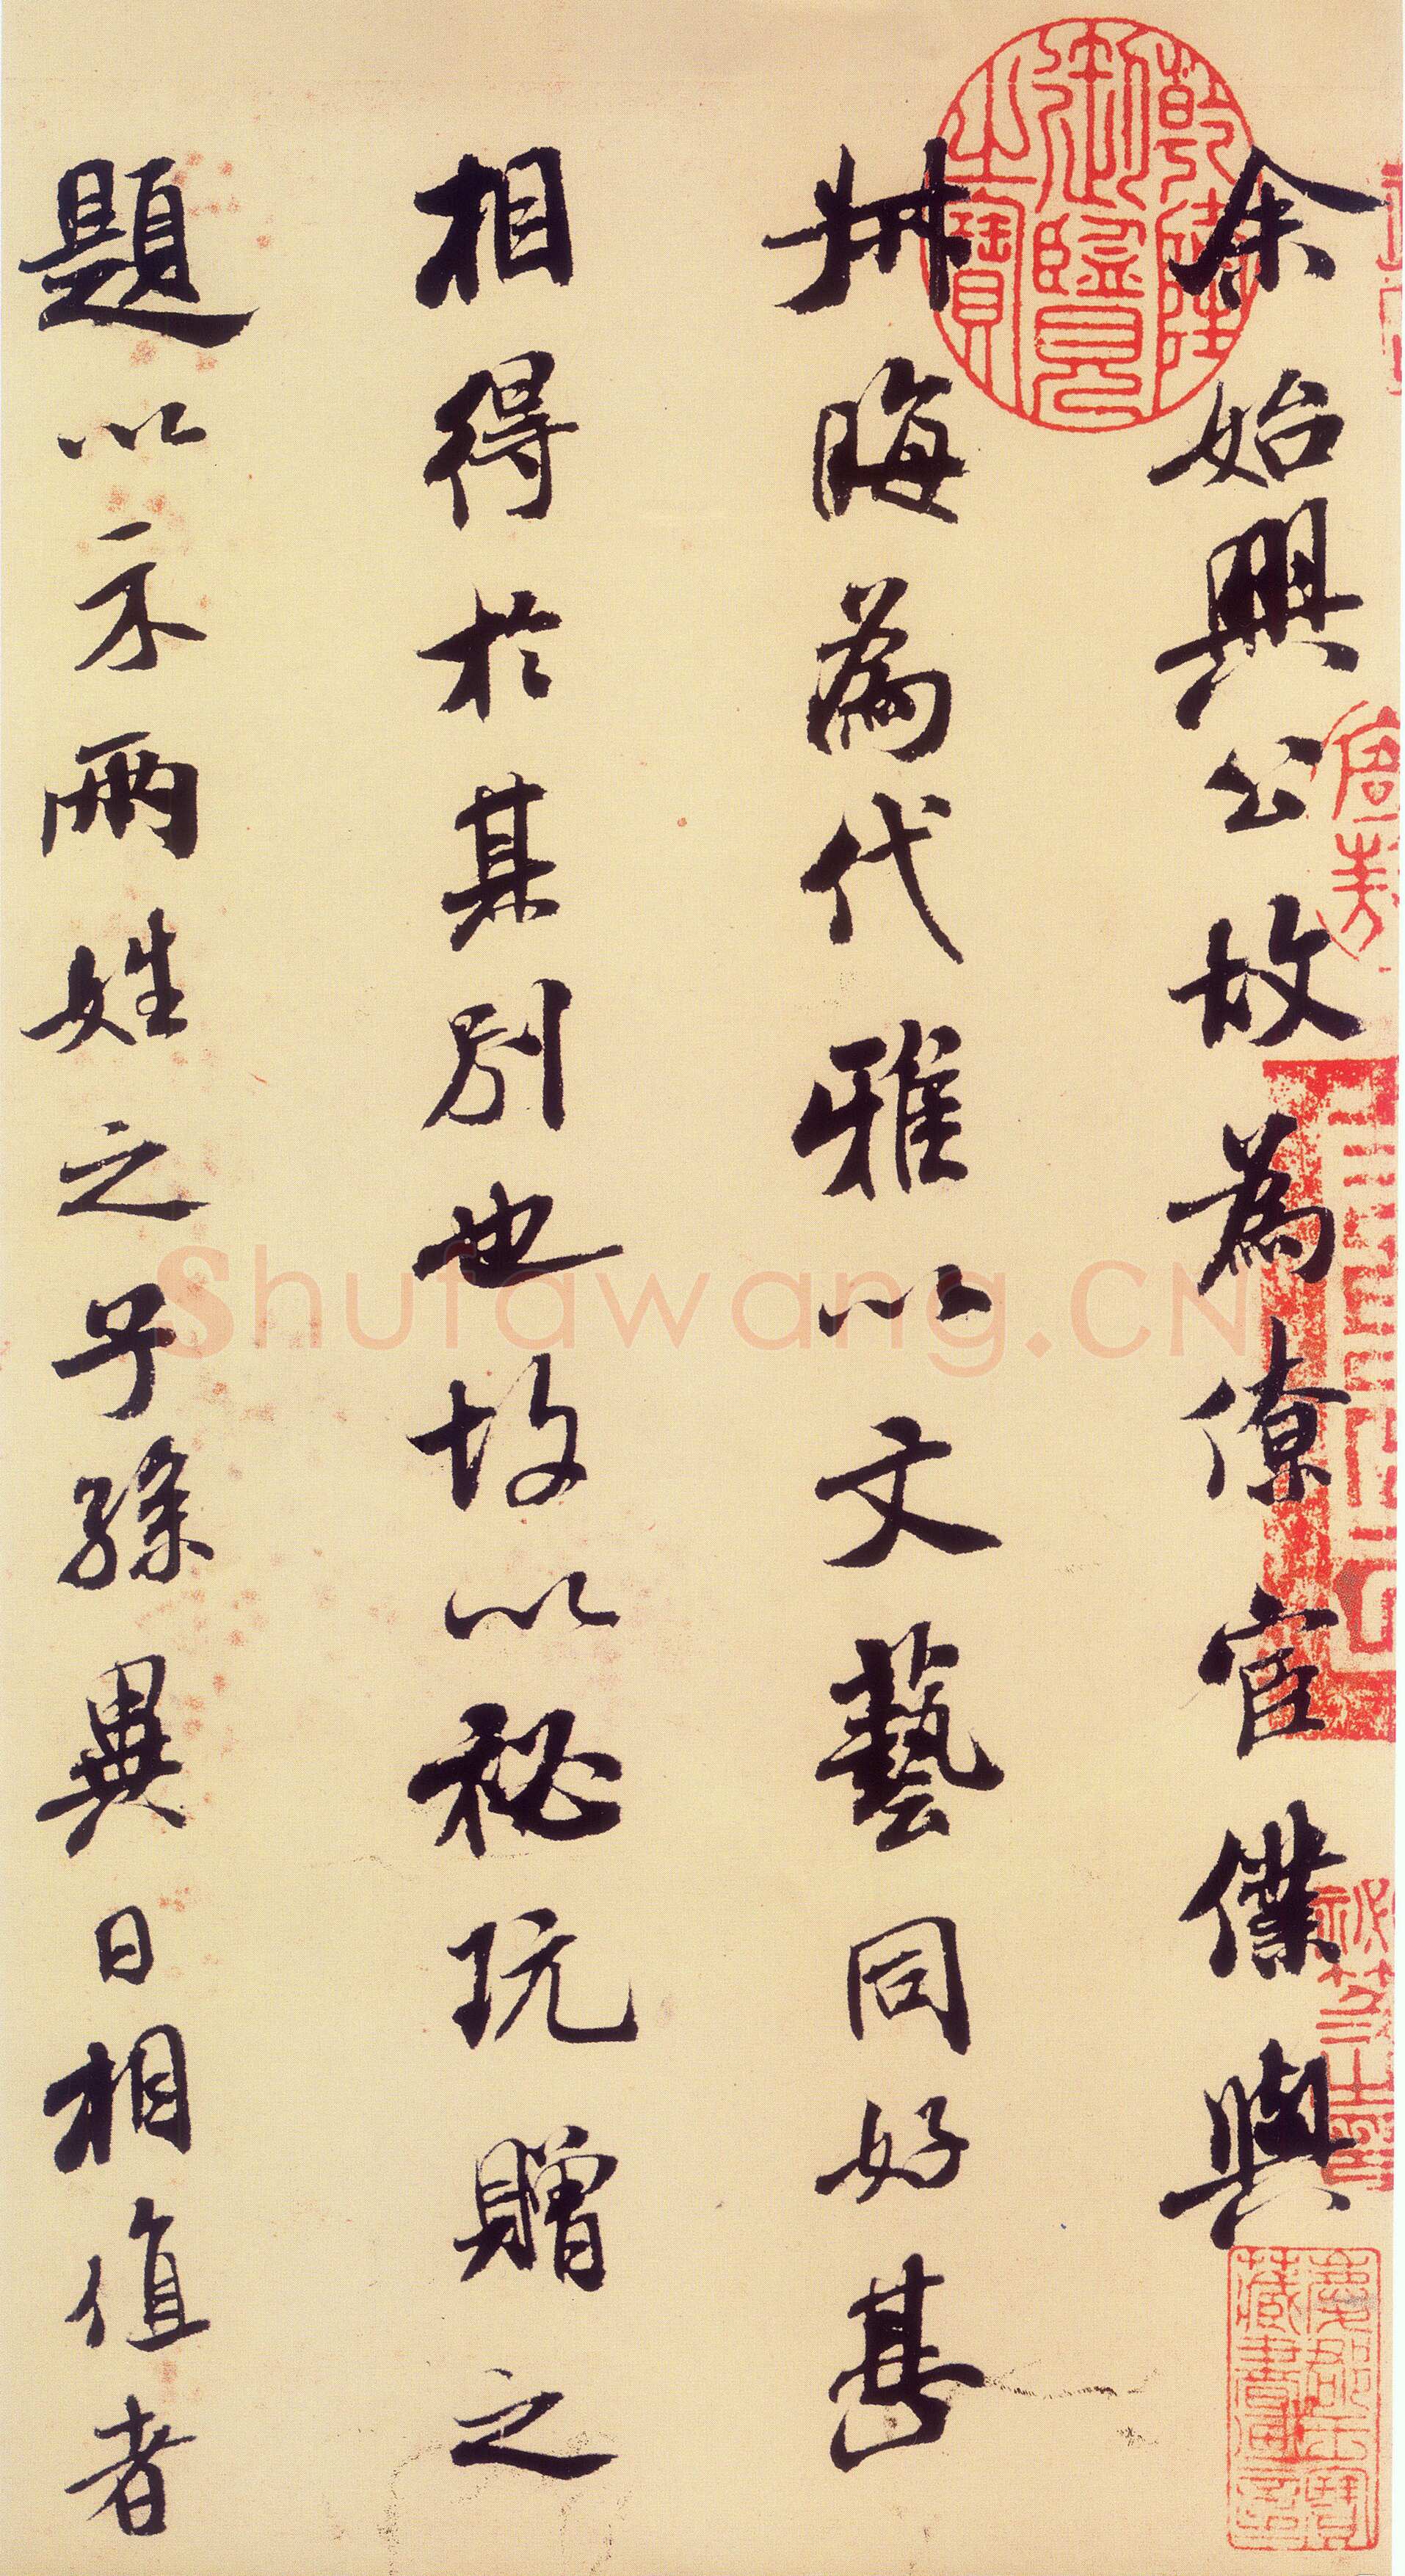 余始興公故為僚宦僕與
叔晦為代雅以文藝同好甚
相得於其別也故以秘玩贈之
題以示兩姓之子孫異日相值者
乾隆御覽之寶
Shufawang.CN